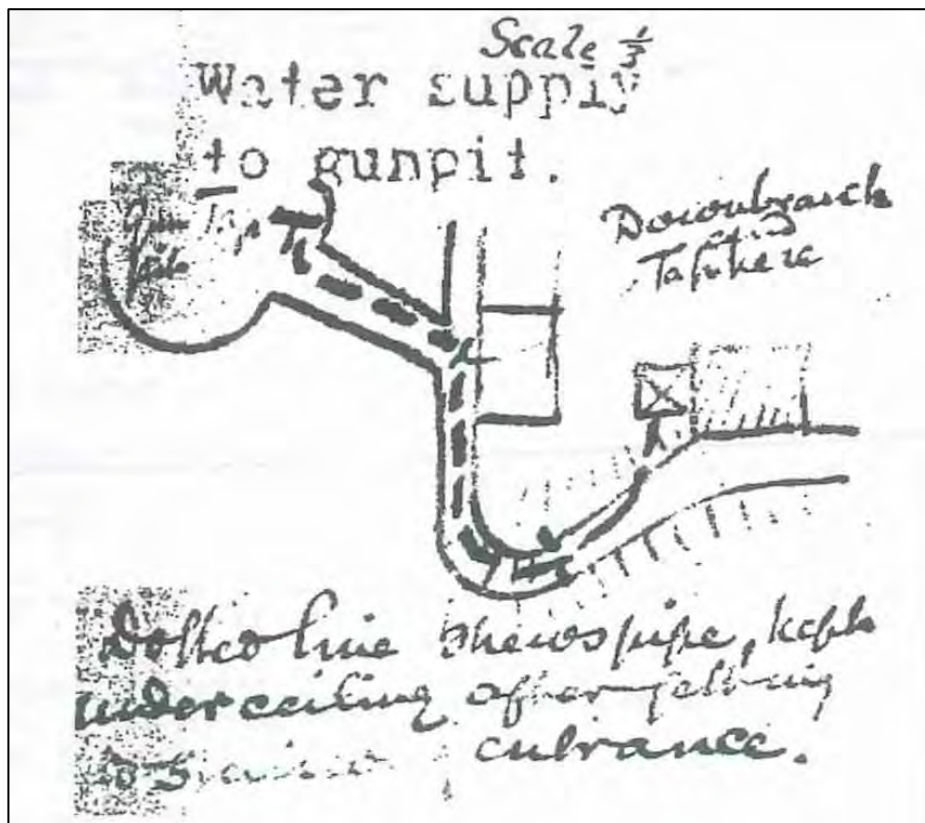 Scale 1/3
Water supply
to gunpit.
Gun Tap
Down branch
Dotted line shews pipe, kept
under ceiling after getting
to entrance.